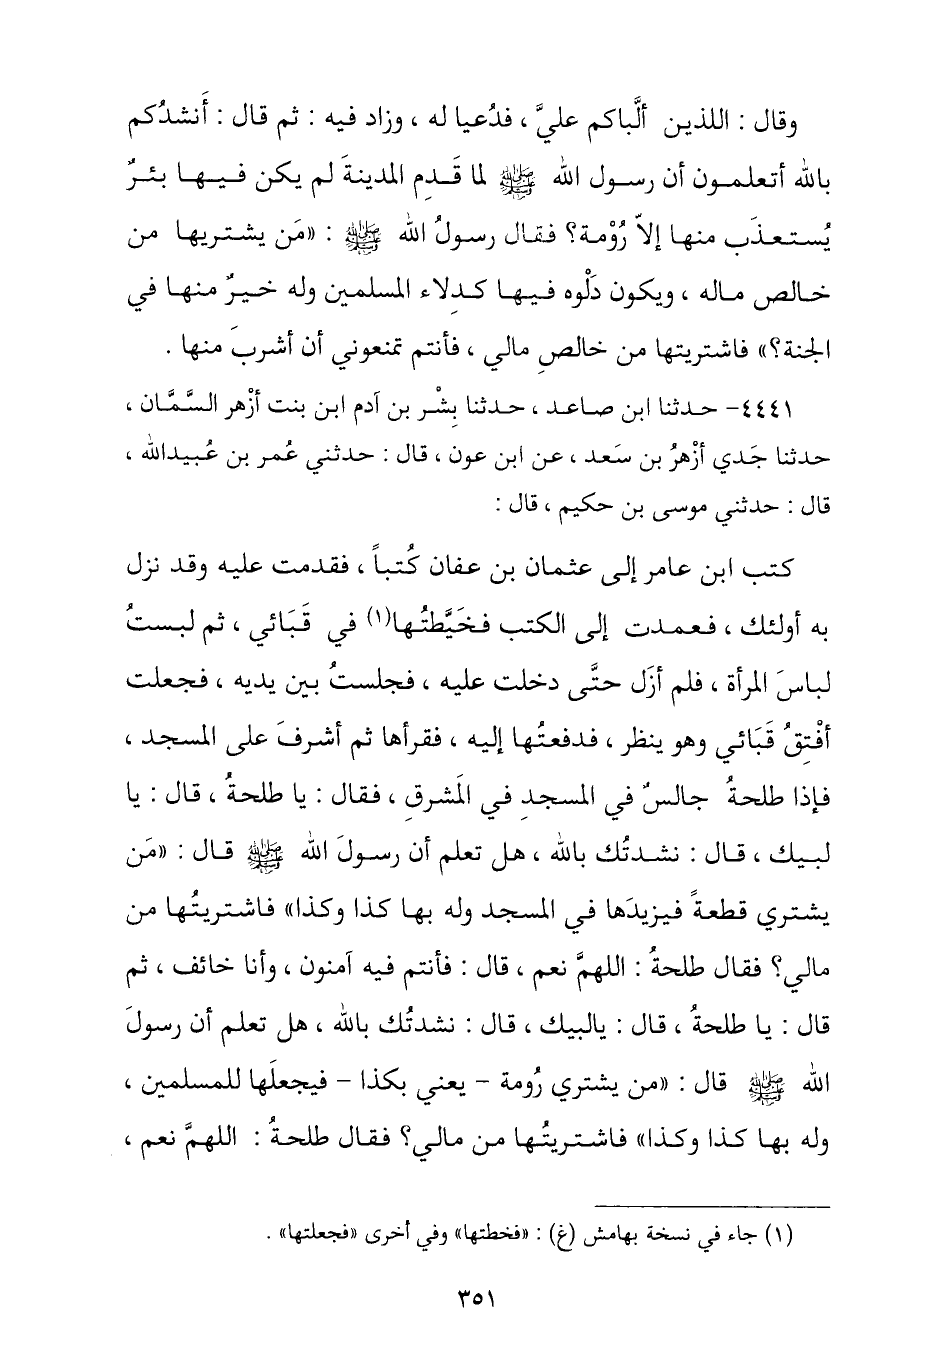 وقال : اللذين ألَّباكم عليَّ ، فدُعيا له ، وزاد فيه : ثم قال : أَنشدُكم
بالله أتعلمون أن رسول الله ﷺ لما قَدِم المدينةَ لم يكن فيها بئرٌ
يُستعذَب منها إلاّ رُوْمة؟ فقال رسولُ الله ﷺ : «مَن يشتريها من
خالصِ ماله ، ويكون دَلْوه فيها كدِلاء المسلمين وله خيرٌ منها في
الجنة؟» فاشتريتها من خالصِ مالي ، فأنتم تمنعوني أن أشربَ منها .
٤٤٤١- حدثنا ابن صاعد ، حدثنا بِشْر بن آدم ابن بنت أزْهر السَّمَّان ،
حدثنا جَدي أزْهرُ بن سَعد ، عن ابن عون ، قال : حدثني عُمر بن عُبيدالله ،
قال : حدثني موسى بن حكيم ، قال :
كتب ابن عامر إلى عثمان بن عفان كُتباً ، فقدمت عليه وقد نزل
به أولئك ، فعمدت إلى الكتب فخَيَّطتُها(١) في قَبَائي ، ثم لبستُ
لباسَ المرأة ، فلم أزَل حتَّى دخلت عليه ، فجلستُ بين يديه ، فجعلت
أفْتِقُ قَبَائي وهو ينظر ، فدفعتُها إليه ، فقرأها ثم أشرفَ على المسجد ،
فإذا طلحةُ جالسٌ في المسجدِ في المَشرقِ ، فقال : يا طلحةُ ، قال : يا
لبيك ، قال : نشدتُك بالله ، هل تعلم أن رسولَ الله ﷺ قال : «مَن
يشتري قطعةً فيزيدَها في المسجد وله بها كذا وكذا» فاشتريتُها من
مالي؟ فقال طلحةُ : اللهمَّ نعم ، قال : فأنتم فيه آمنون ، وأنا خائف ، ثم
قال : يا طلحةُ ، قال : يالبيك ، قال : نشدتُك بالله ، هل تعلم أن رسولَ
الله ﷺ قال : «من يشتري رُومة - يعني بكذا - فيجعلَها للمسلمين ،
وله بها كذا وكذا» فاشتريتُها من مالي؟ فقال طلحةُ : اللهمَّ نعم ،
(١) جاء في نسخة بهامش (غ) : «فخطتها» وفي أخرى «فجعلتها» .
٣٥١